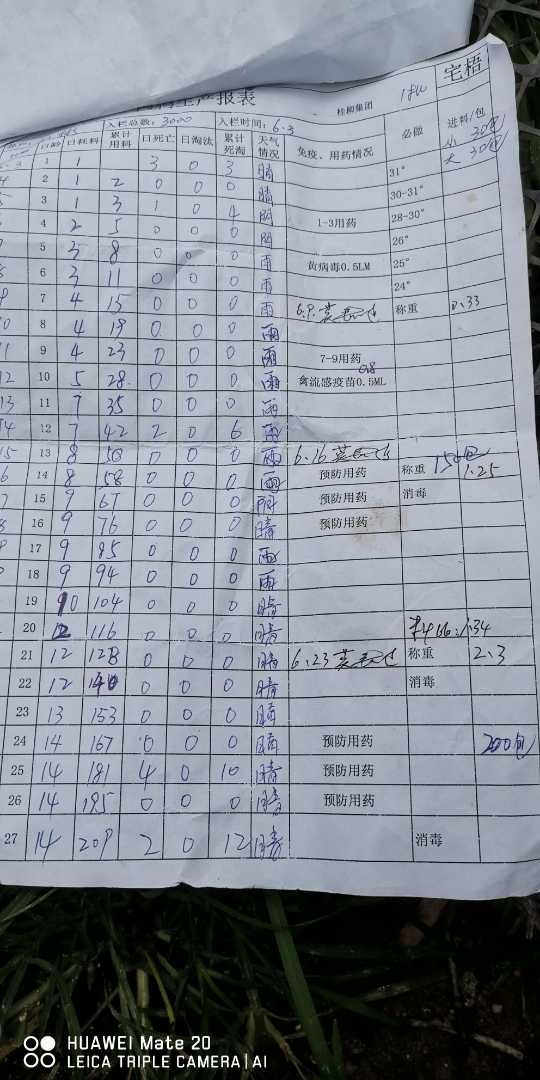 报表 桂柳集团 宅梧
入栏总数: 3000 入栏时间: 6.3 必做 进料/包
日龄 日耗料 累计用料 日死亡 日淘汰 累计死淘 天气情况 免疫、用药情况 小 30包
大 30包
1 1 3 0 3 晴 31°
2 1 2 0 0 0 晴 30-31°
3 1 3 1 0 4 阴 1-3用药 28-30°
4 2 5 0 0 0 阴 26°
5 3 8 0 0 0 雨 黄病毒0.5LM 25°
6 3 11 0 0 0 雨 24°
7 4 15 0 0 0 雨 6.9. 称重 0.33
8 4 19 0 0 0 雨
9 4 23 0 0 0 雨 7-9用药
10 5 28 0 0 0 雨 禽流感疫苗0.5ML
11 7 35 0 0 0 雨
12 7 42 2 0 6 雨
13 8 50 0 0 0 雨 6.16 150包
14 8 58 0 0 0 雨 预防用药 称重 1.25
15 9 67 0 0 0 阴 预防用药 消毒
16 9 76 0 0 0 晴 预防用药
17 9 85 0 0 0 雨
18 9 94 0 0 0 雨
19 10 104 0 0 0 晴
20 12 116 0 0 0 晴
21 12 128 0 0 0 晴 6.23 称重 2.3
22 12 140 0 0 0 晴 消毒
23 13 153 0 0 0 晴
24 14 167 0 0 0 晴 预防用药 200包
25 14 181 4 0 10 晴 预防用药
26 14 195 0 0 0 晴 预防用药
27 14 209 2 0 12 晴 消毒
HUAWEI Mate 20
LEICA TRIPLE CAMERA | AI